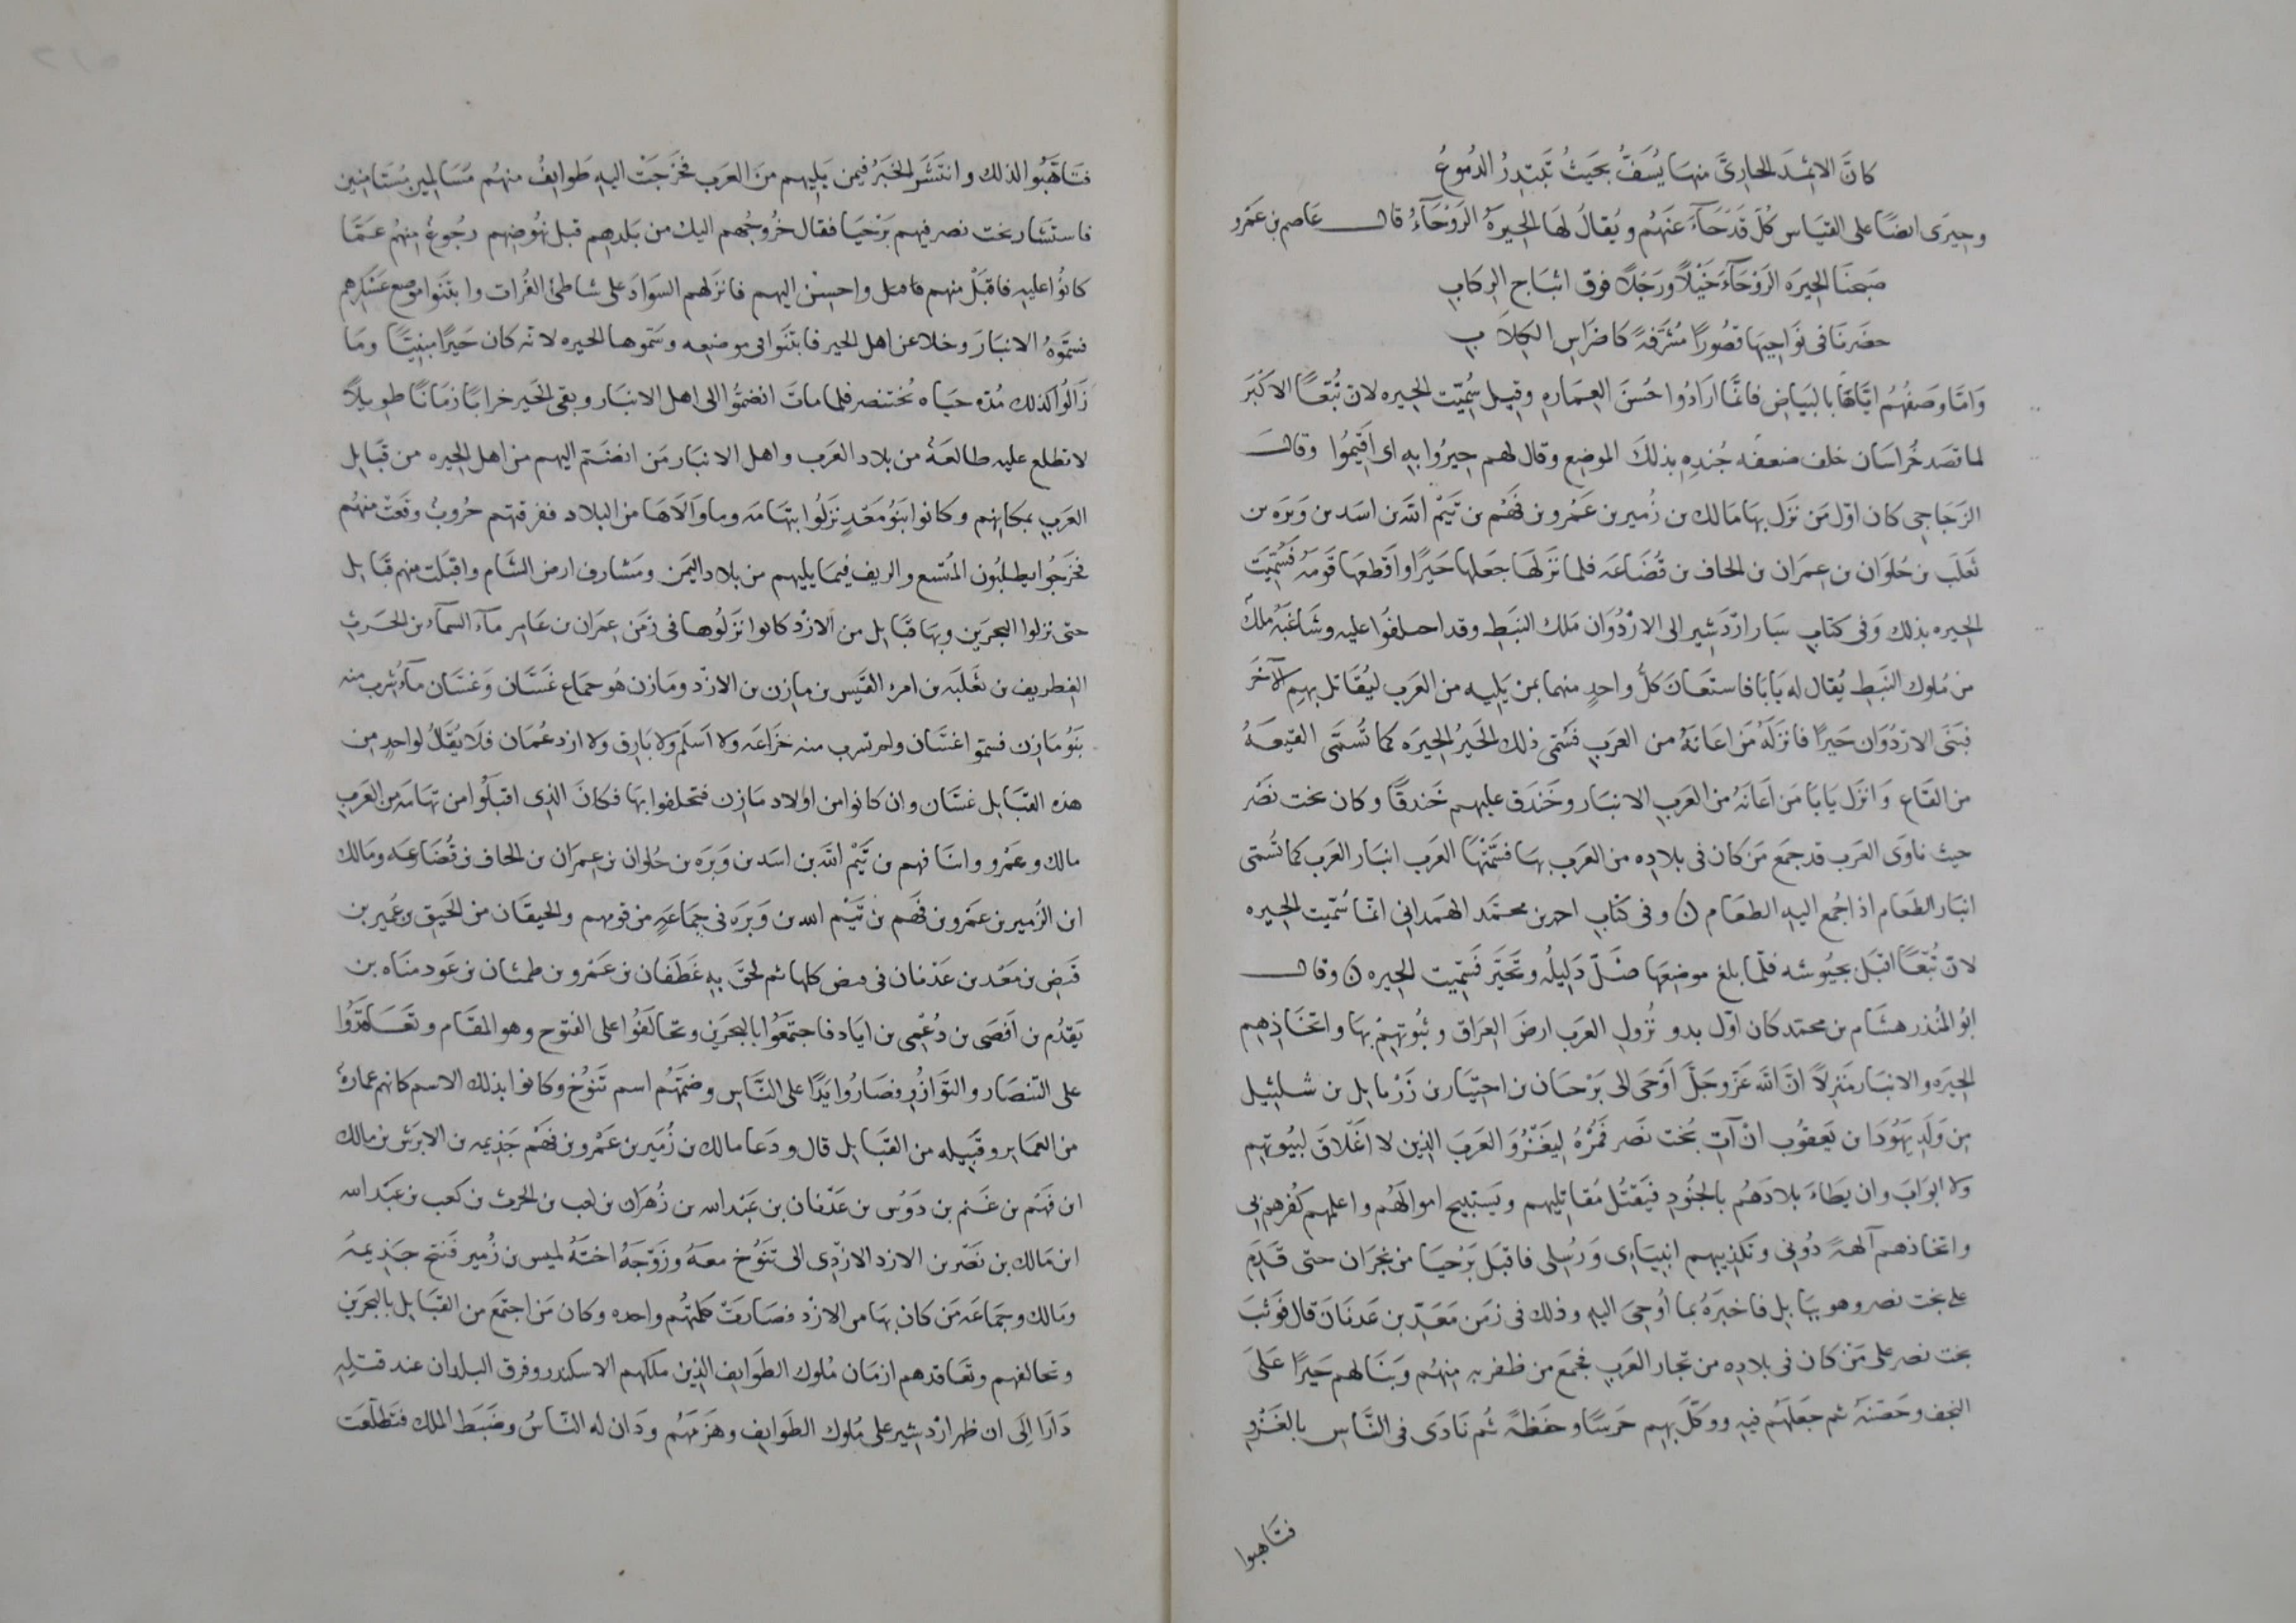 كانَّ الاثمدَ الحاريَّ منهَا يُسَفُّ بحَيثُ تَبتدِرُ الدُموعُ
وحِيَرى ايضًا على القيَاس كُلّ قدَ جَاءَ عَنهُم ويُقالُ لهَا الحِيرَةُ الرَوْحَآءُ قال عَاصِم بن عَمرو
صَبحنَا الحِيرَه الرَوْحَآءَ خَيْلًا ورَجَلًا فوق اثبَاج الرِكابِ
حضَرنَا فى نَوَاحِيهَا قصُورًا مُشَرَّفةً كاضرَاسِ الكِلَابِ
وَامّا وَصَفهُم ايَّاهَا بالبيَاضِ فانَّما ارَادُوا حُسنَ العِمَاره وقيل سِمّيت الحِيره لان تُبّعًا الاَكبَر
لما قصَد خُراسَان خلف ضعفَه جُندِهِ بذلكَ الموضِع وقال لهم حِيرُوا بهِ اى اَقِيمُوا وقال
الزَجَاجِي كان اوّل مَن نَزَل بهَا مَالك بن زُهير بن عَمْرو بن فَهْم بن تَيْم الله بن اسَد بن وَبَرَه بن
ثَعلَب بن حُلوَان بن عِمرَان بن الحاف بن قُضَاعَه فلما نَزَلهَا جَعَلها حَيرًا واَقطعَهَا قَومَهُ فَسُمِّيَت
الحِيره بذلك وَفى كتابِ سَار ارْدَشِير الى الارْدُوَان مَلك النبَطِ وقد احلفُوا عليه وشَاغَبَهُ مَلك
من مُلوك النَبَطِ يُقال له بَابَا فاستَعَانَ كلُّ واحدٍ منهما بمن يَلِيهِ من العَرب ليُقَاتل بهِم الآخَر
فبَنَى الاردُوَان حَيرًا فانزَلَهُ مَن اعَانَهُ من العَرب فسَُمّى ذلك الحَيرُ الحِيرَه كما تُسَمَّى القيعَهُ
من القَاعِ وَانزَل بَابَا مَن اَعَانَهُ من العَربِ الانبَار وخَندَق عليهم خَندقًا وكان بخت نصَّر
حيث ناوَى العَرَب قد جمَع مَن كان فى بلادِه من العَرب بهَا فسَمَّتْهَا العَرب انبَار العَرب كما تُسَمّى
انبَار الطَعَام اذا جُمع اليهِ الطعَام ن وفى كتابِ احمد بن محمَّد الهمَدانِى انمّا سُمّيت الحِيره
لانّ تُبَّعًا اقبَل بجُيوشه فلمّا بلغ موضِعَها ضَلّ دَلِيلُه وتحَيَّر فَسُمِّيت الحِيره ن وقال
ابوُ المُنذر هشَام بن محمّد كان اوّل بدو نُزولِ العَرب ارضَ العِراق وثُبُوتهِمْ بهَا واتخَاذِهم
الحِيَره والانبَار مَنزِلاً انّ الله عَزّ وجَلّ اَوْحَى الى بَرْحيَان بن احنيَار بن زَرْبَابِل بن شلثِيل
مِن وَلَدِ يَهُوذَا بن يَعقوُب انْ آتِ بُخت نصَر فَمُرْهُ لِيَغْزُوَ العَرَبَ الذِين لا اَغْلَاقَ لبيُوتهم
ولا ابوَابَ وان يَطاءَ بلَادَهُم بالجنُودِ فيَقتُل مُقاتِليهم ويَستبِيح اموالَهُم واعلمهم كُفرهم بِى
واتخاذهم آلهةً دُونِى وتكذِيبهم انبيَاءِى وَرُسُلِى فاقبَل بَرْحيَا من نجرَان حتى قَدِم
على بخت نصر وهو بِبَابِل فاخبَرَهُ بما اُوحِىَ اليهِ وذلك فى زَمَن مَعَدّ بن عَدنَانَ قال فوَثبَ
بخت نصر على مَن كان فى بلادِه من تجار العَربِ فجمَع من ظفر به مِنهُم وبَنَا لهم حَيرًا عَلَى
النجف وحَصّنهُ ثم جعَلَهُم فيهِ ووكّلَ بهِم حَرسًا وحفَظهً ثُم نَادَى فى النَّاسِ بالغَزْوِ
فتاهبوا
فتَاهَّبُوا لذلك وانتَشَر الخبَرُ فيمن يَليهم مَن العَرَب فخرَجَتْ اليهِ طَوايفُ منهُم مُسَالمِين مُستَامنِين
فاستشَار بخت نصر فيهم بَرْحيَا فقال خُروجُهم اليك من بَلدهِم قبل نهُوضِهم رجُوعٌ مِنهُم عَمَّا
كانوُا عليهِ فاقبَلْ منهم فامل واحسِنْ اليهم فانزَلهم السَوادَ على شاطئ الفُرات وابتنَوا موضع عَسْكرهم
فسَمَّوْهُ الانبَارَ وخلا عن اهل الحير فابتَنوا فى موضِعه وسَمّوها الحيره لانّه كان حَيرًا مبنِيًّا ومَا
زَالُوا كذلك مُدّه حيَاه بُختنصر فلما ماتَ انضَمُّوا الى اهل الانبَار وبقى الحَير خرابًا زمَانًا طويلًا
لا تطلع عليهِ طالعَهٌ من بلاد العَرب واهل الانبَار مَن انضَم اليهم من اهل الحِيره من قبَايل
العَربِ بمكانِهم وكانوا بَنُو مَعَدٍّ نزَلُوا بتهَامَه وما وَالَاهَا من البِلاد ففرقتهم حُروبٌ وقعَتْ منهُم
فخرَجُوا يطلبُون المُتّسع والريف فيمَا يلِيهِم من بلاد اليَمَن ومَشارف ارض الشَام واقبَلت منهم قبَايل
حتى نزلوا البحرَين وبهَا قبَايل من الاَزْد كانوا نَزَلُوها فى زمَن عِمرَان بن عَامِر مآء السمَآء بن الحَرثِ
الغِطريف بن ثَعْلبَه بن امرء القَيس بن مازِن بن الازْد ومَازن هُو جمَاع غَسَّان وَغسَّان مآءُ شرب منه
بَنُو مَازِن فسمّوا غسَّان ولم تشرب منه خزاعَه ولا اَسلَم ولا بَارِق ولا ازد عُمَان فَلَا يُقَلْ لواحدٍ من
هذه القبَايل غسّان وان كانوا من اوْلاد مَازن فتخلفوا بهَا فكانَ الذِى اقبلُوا من تهَامَه من العَربِ
مالك وعَمْرو وابنَا فهم بن تَيْم الله بن اسَد بن وَبَرَه بن حُلوان بن عِمرَان بن الحاف بن قُضَاعَه ومَالك
ابن الزُهير بن عَمْرو بن فَهَم بن تَيْم الله بن وَبَرَه فى جمَاعَهٍ من قومهم والحيقَان من الحَيق بن عُمير بن
قَنصِ بن مَعَد بن عَدْنان فى كلها ثم لحقَ بهِ غَطَفان بن عَمْرو بن طمثان بن عَود منَاه بن
يَقدُم بن اَفصَى بن دُعْمِى بن ايَاد فاجتمَعُوا بالبحَرَين وتحالفَوُا على الفتوح وهو المقَام وتعَاهَدُوا
على التّنصَار والتوَازُرِ فصَارُوا يَدًا على النَّاسِ وضمَّهُم اسم تَنوُخ وكانوا بذلك الاسم كانهم عمارهٌ
من العمَاير وقبِيله من القبَايل قال ودَعا مالك بن زُهَير بن عَمْرو بن فَهْم جَذِيمه بن الابرَش بن مالك
ابن فَهَم بن غَنم بن دَوْس بن عَدْنان بن عَبْد الله بن زُهرَان بن كعب بن الحرث بن كعب بن عَبْد الله
ابن مَالك بن نَصْر بن الازد الازْدِى الى تَنَوُخ معَهُ وزَوّجهُ اختَهُ لميس بن زُهير فَنتخ جَذِيمهُ
ومَالك وجمَاعَه مَن كان بهَا من الازْد فصَارَتْ كلمَتُهم واحده وكان مَن اجتمَع من القبَايل بالبحرَين
وتحالفهم وتعَاقدهم ازمَان مُلوك الطوَايف الذِين ملكهم الاسكندر وفرق البلدان عند قتلِهِ
دَارَا إلَى ان ظهر ارْدشِير على مُلوك الطوَايف وهَزمهُم ودَان له النَاسُ وضبَط الملك فتَطلّعَت